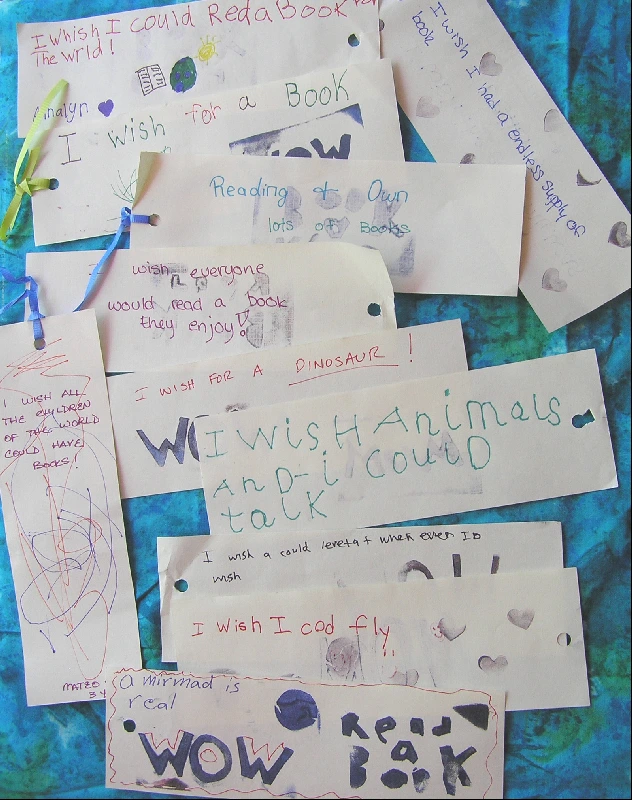 I Whish I could Red a Book for
The wrld!
Analyn
I wish for a Book
WOW
I wish I had a endless supply of
book
Reading & Own
lots of Books
I wish everyone
would read a book
they enjoy!
I WISH FOR A DINOSAUR!
WO
I WISH ALL
THE CHILDREN
OF THE WORLD
COULD HAVE
BOOKS!
MATEO
3 Y
I WisH Animals
AnD-i COulD
talK
I wish a could when ever I
wish
I wish I cod fly
a mirmad is
real
WOW
Read
a
Book